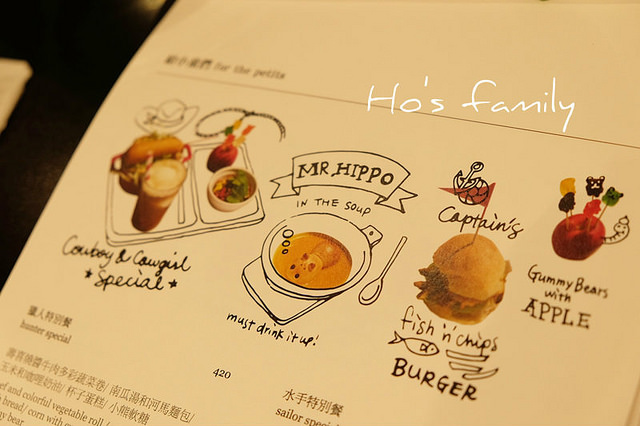 for the petits
Ho's family
MR. HIPPO
IN THE SOUP
Captain's
Cowboy & Cowgirl
Special
Gummy Bears
with
APPLE
must drink it up!
fish 'n' chips
BURGER
獵人特別餐
hunter special
420
壽喜燒醬牛肉多彩蔬菜卷/ 南瓜湯和河馬麵包/
玉米和咖哩奶油/ 杯子蛋糕/ 小熊軟糖
水手特別餐
sailor
ef and colorful vegetable roll /
bread/ corn with
bear